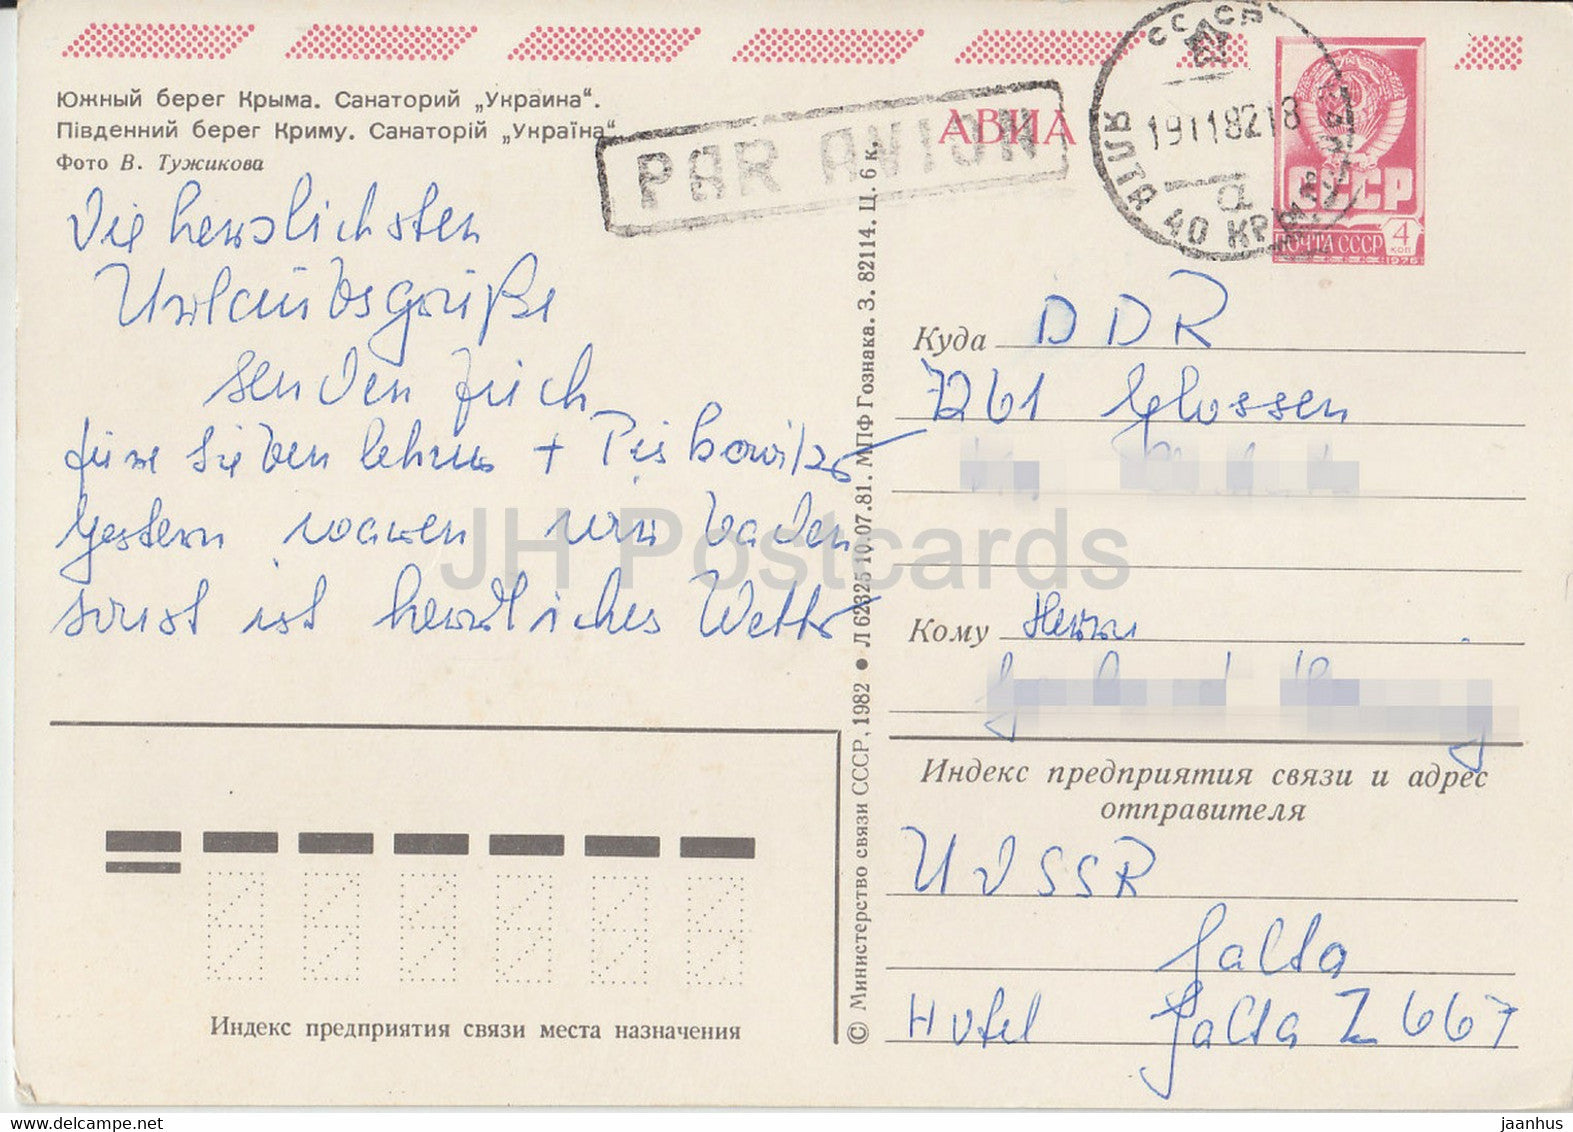 Южный берег Крыма. Санаторий „Украина“.
Південний берег Криму. Санаторій „Україна“.
Фото В. Тужикова
PAR AVION
АВИА
СССР
ЯЛТА 40
19118218
а
СССР
ПОЧТА СССР 4 КОП
1976
Die herzlichsten
Urlaubsgrüße
senden Euch
Gestern waren wir baden
sonst ist herrliches Wetter
© Министерство связи СССР, 1982 ● Л 62325 10.07.81. МПФ Гознака. З. 82114. Ц. 6 к.
Куда DDR
7261 Glossen
Кому Herrn
Индекс предприятия связи и адрес
отправителя
UdSSR
Jalta
Hotel Jalta Z 667
Индекс предприятия связи места назначения
JH Postcards
www.delcampe.net
jaanhus